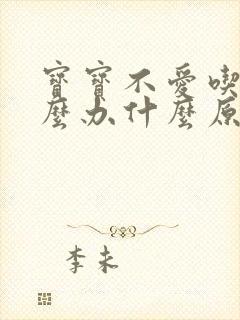 寶寶不愛喫
麼办什麼原
李未